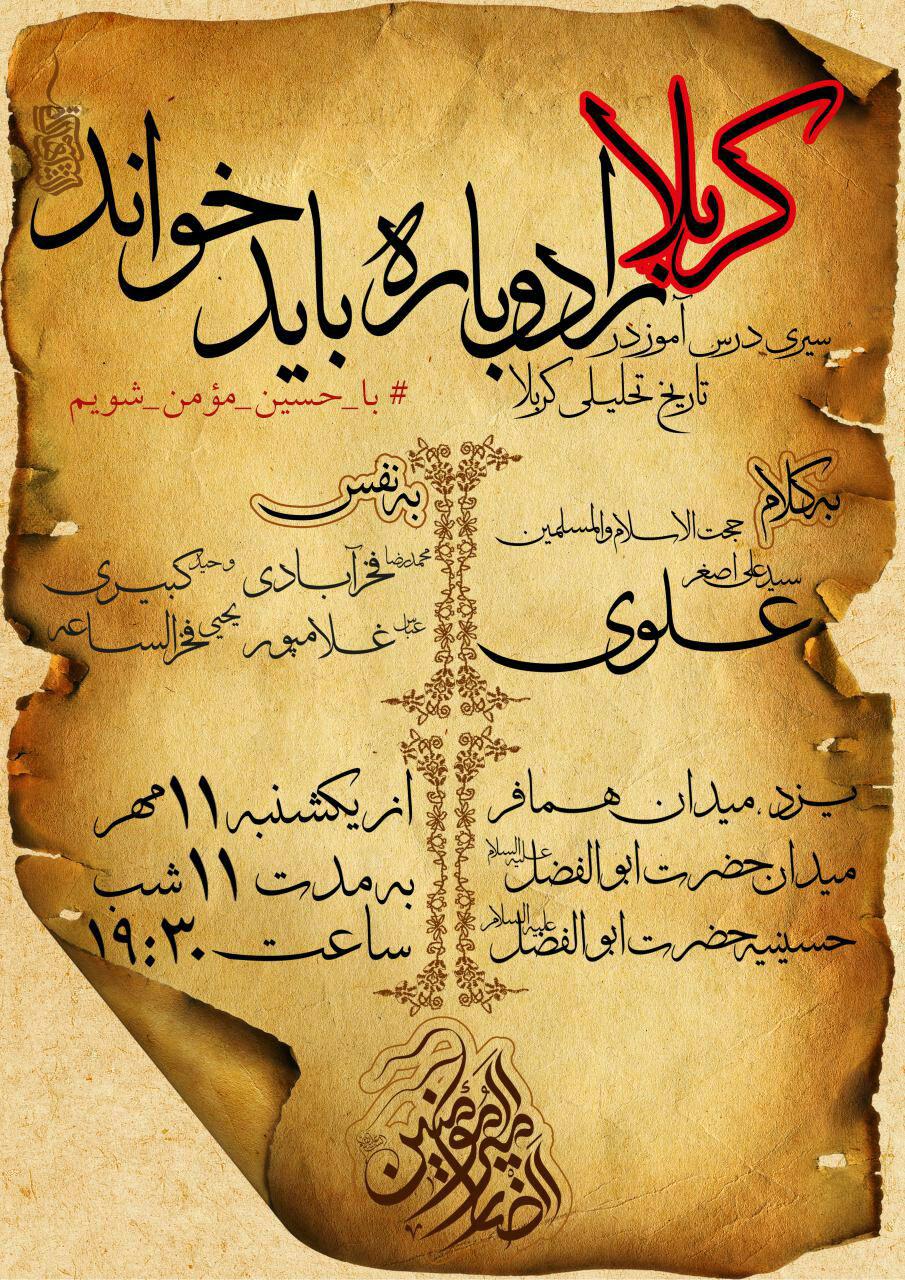 کربلا را دوباره باید خواند
سیری درس آموز در
تاریخ تحلیلی کربلا
# با_حسین_مؤمن_شویم
به کلام
حجت الاسلام والمسلمین
سید علی اصغر
علوی
به نفس
محمدرضا فخرآبادی وحید کبیری
عباس غلامپور یحیی فخرالساعه
یزد، میدان همافر
میدان حضرت ابوالفضل علیه السلام
حسینیه حضرت ابوالفضل علیه السلام
از یکشنبه ۱۱ مهر
به مدت ۱۱ شب
ساعت ۱۹:۳۰
انصار امیرالمؤمنین